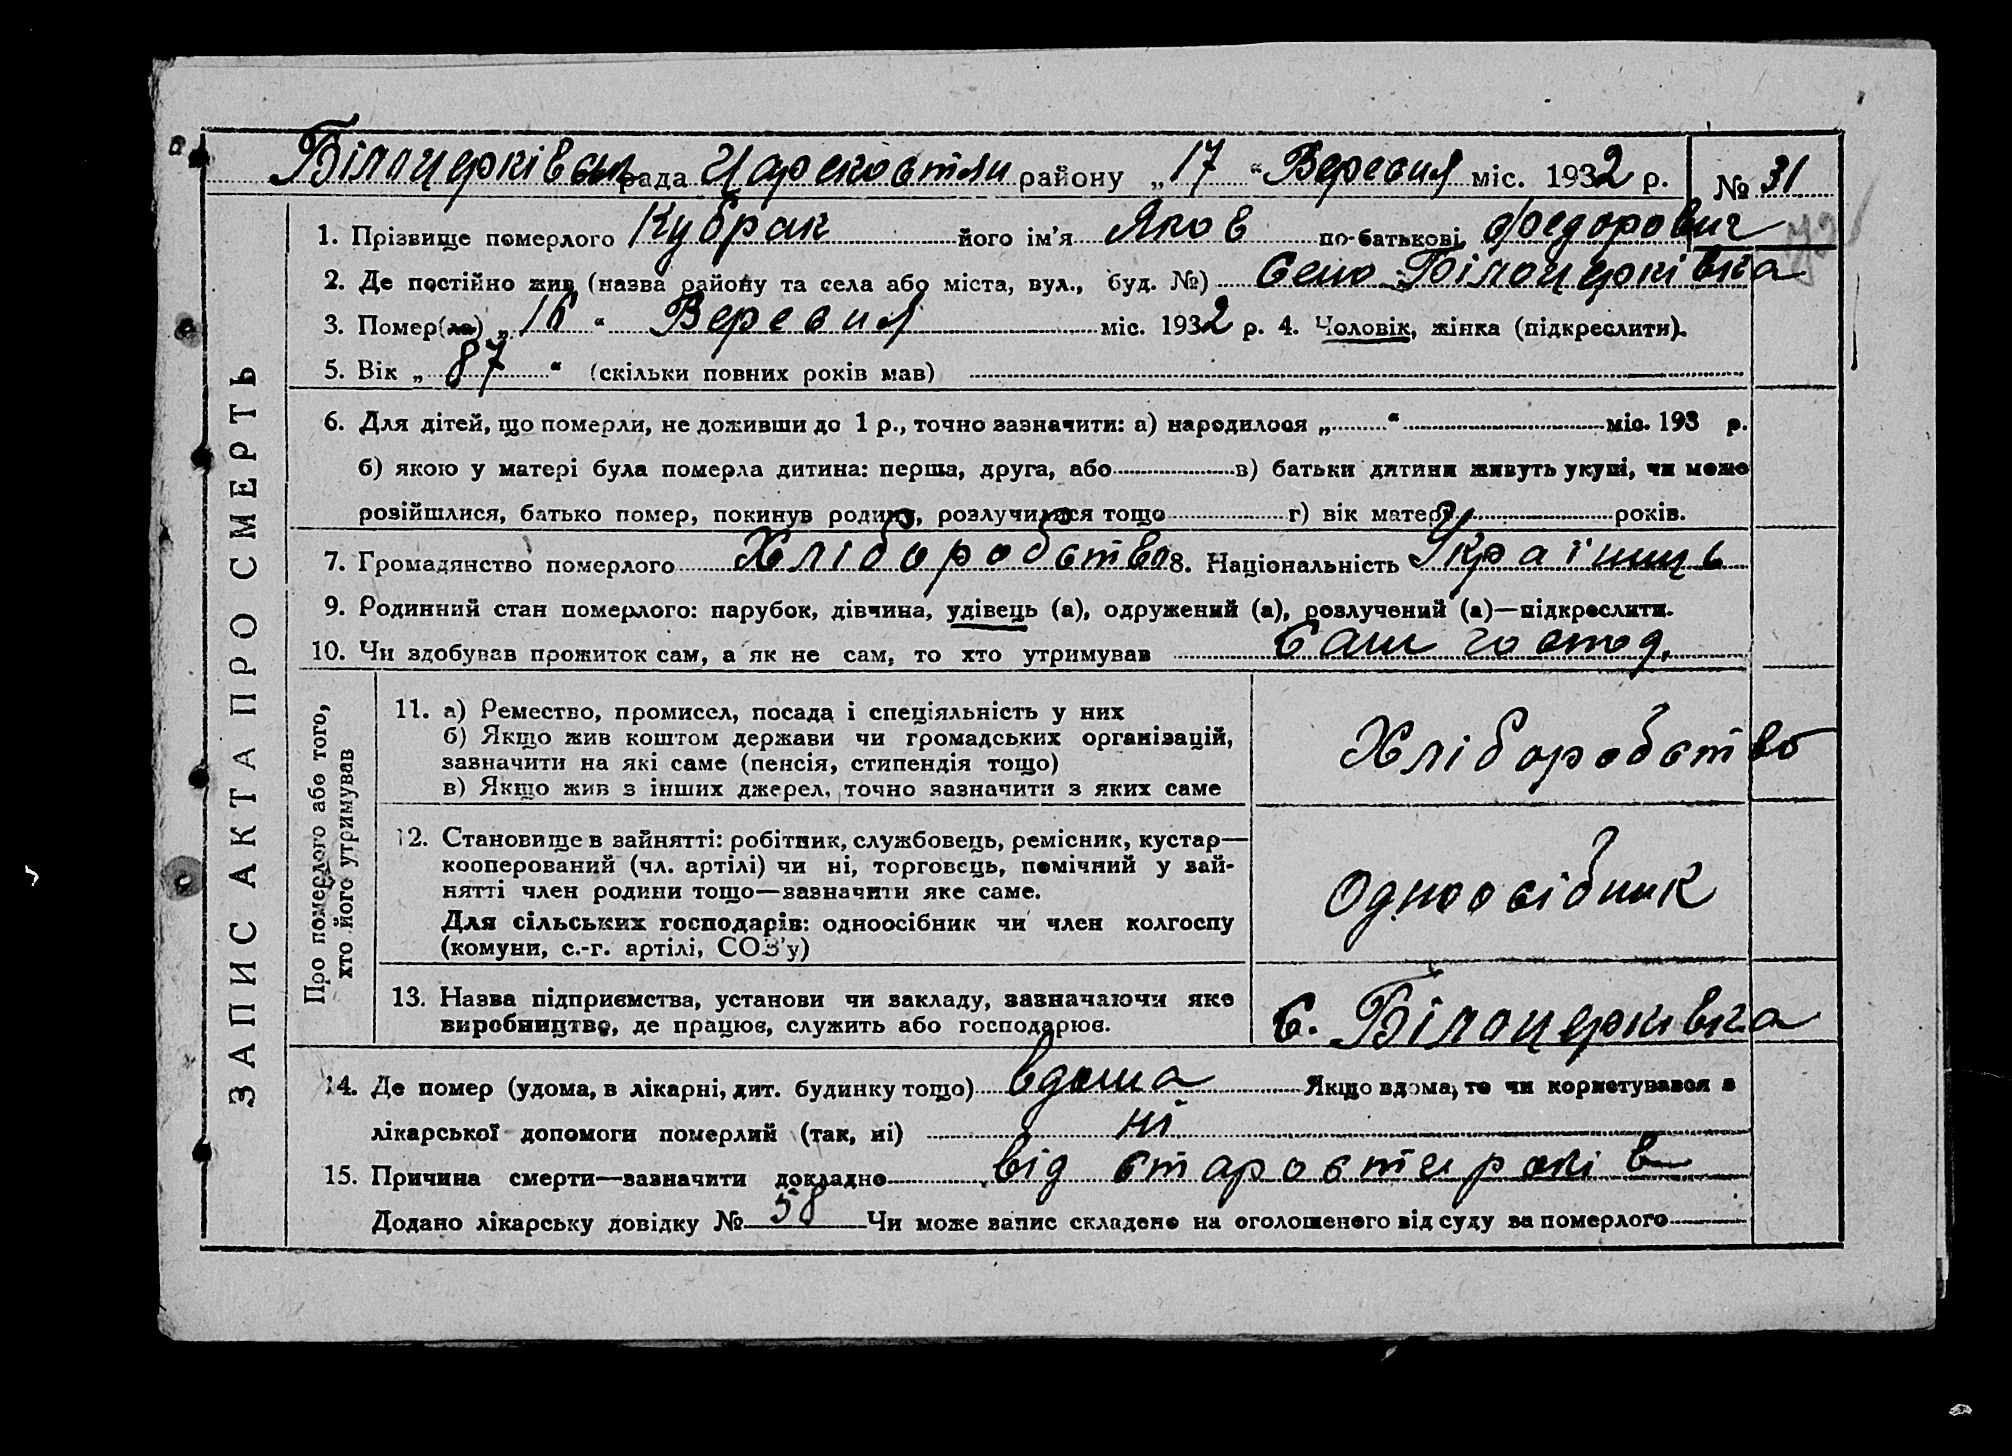 Білоцерківськ рада Царекостян району „17“ Вересня міс. 1932 р. № 31
1. Прізвище померлого Кубрак його ім'я Яков по-батькові Федорович
2. Де постійно жив (назва району та села або міста, вул., буд. №) Село Білоцерківка
3. Помер(ла) „16“ Вересня міс. 1932 р. 4. Чоловік, жінка (підкреслити).
5. Вік „87“ (скільки повних років мав)
6. Для дітей, що померли, не доживши до 1 р., точно зазначити: а) народилося „ “ міс. 193 р.
б) якою у матері була померла дитина: перша, друга, або в) батьки дитини живуть укупі, чи може
розійшлися, батько помер, покинув родину, розлучилися тощо г) вік матери років.
7. Громадянство померлого Хлібороботво 8. Національність Українць
9. Родинний стан померлого: парубок, дівчина, удівець (а), одружений (а), розлучений (а)—підкреслити.
10. Чи здобував прожиток сам, а як не сам, то хто утримував Сам господ.
ЗАПИС АКТА ПРО СМЕРТЬ
Про померлого або того,
хто його утримував
11. а) Ремество, промисел, посада і спеціяльність у них
б) Якщо жив коштом держави чи громадських організацій,
зазначити на які саме (пенсія, стипендія тощо)
в) Якщо жив з інших джерел, точно зазначити з яких саме
Хліборобство
12. Становище в зайнятті: робітник, службовець, ремісник, кустар—
кооперований (чл. артілі) чи ні, торговець, помічний у зай-
нятті член родини тощо—зазначити яке саме.
Для сільських господарів: одноосібник чи член колгоспу
(комуни, с.-г. артілі, СОЗ'у)
Одноосібник
13. Назва підприємства, установи чи закладу, зазначаючи яке
виробництво, де працює, служить або господарює.
С. Білоцерківка
14. Де помер (удома, в лікарні, дит. будинку тощо) вдома Якщо вдома, то чи користувався з
лікарської допомоги померлий (так, ні) ні
15. Причина смерти—зазначити докладно від старости років
Додано лікарську довідку № 58 Чи може запис складено на оголошеного від суду за померлого